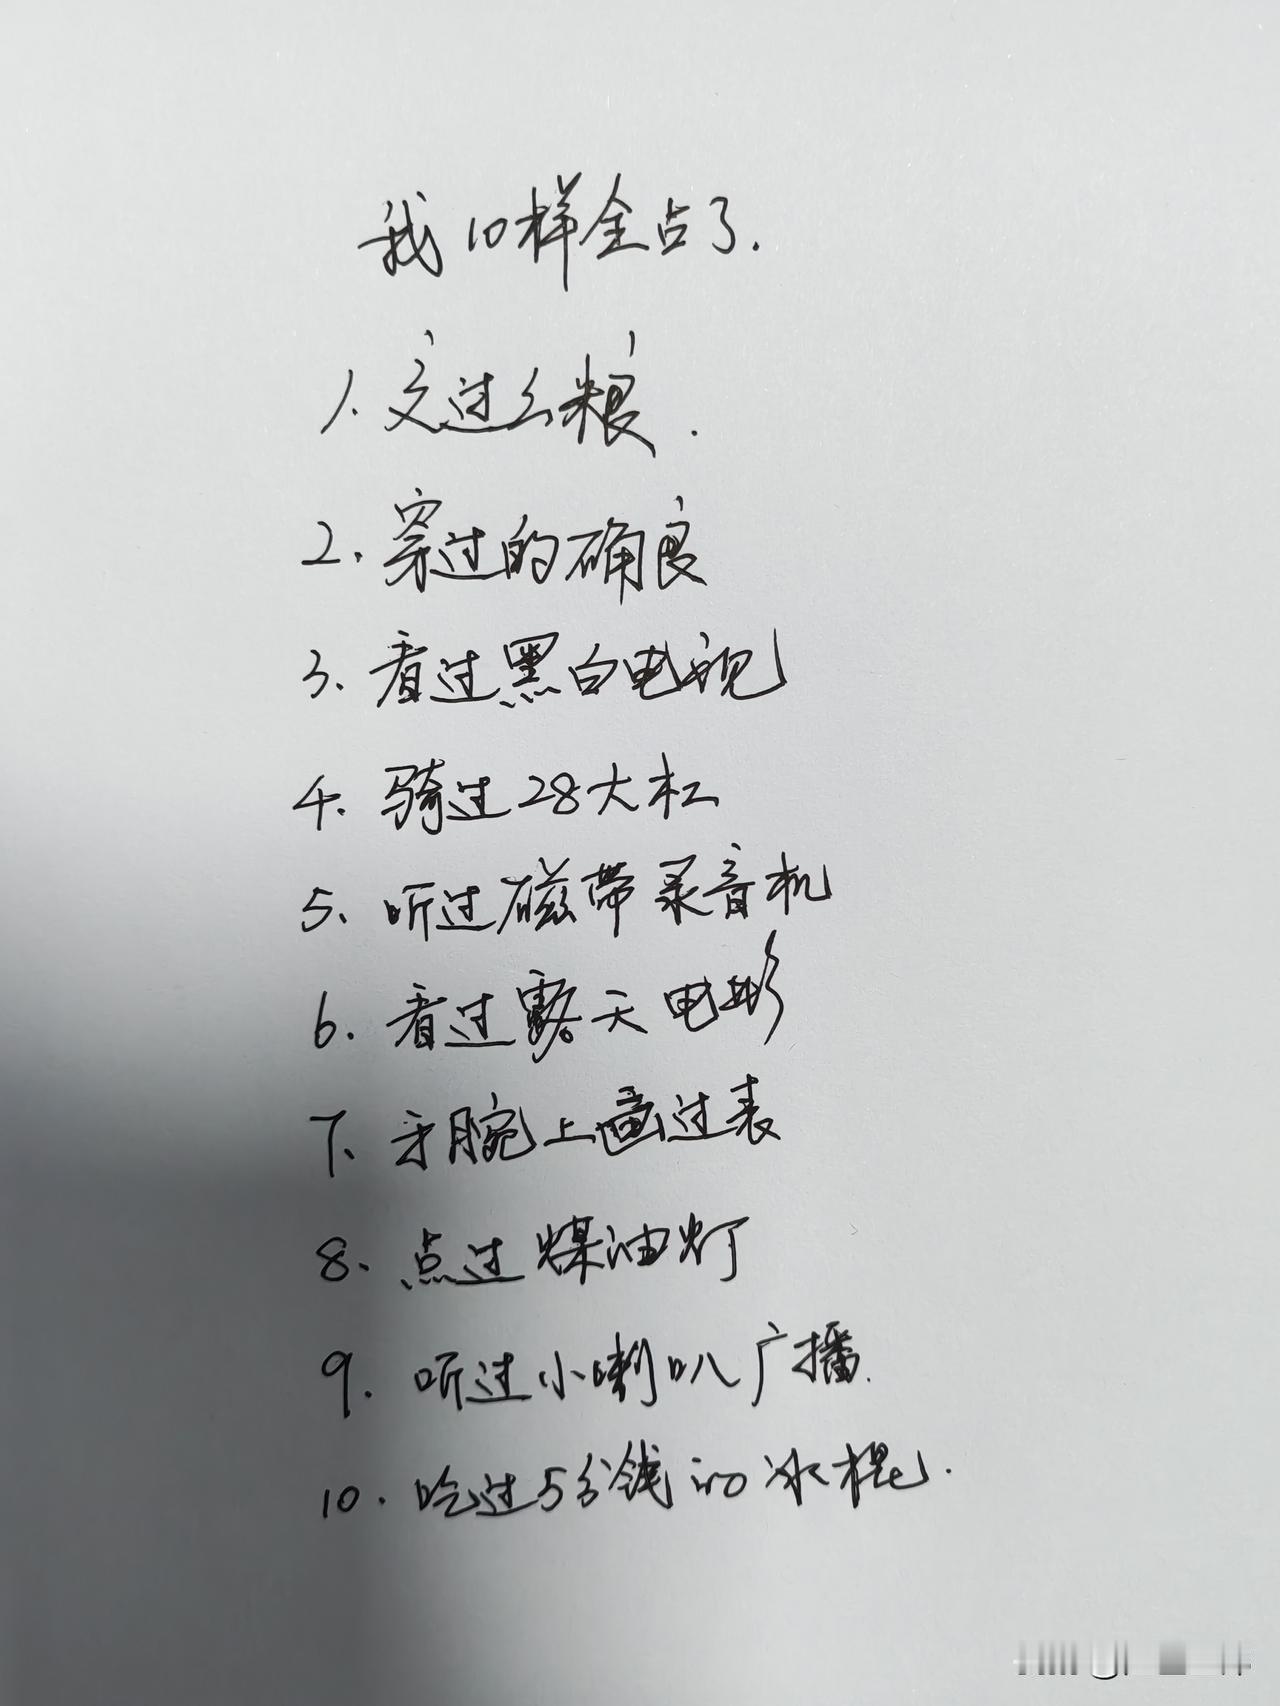 我10样全占了.
1. 交过公粮.
2. 穿过的确良
3. 看过黑白电视
4. 骑过28大杠
5. 听过磁带录音机
6. 看过露天电影
7. 手腕上画过表
8. 点过煤油灯
9. 听过小喇叭广播.
10. 吃过5分钱的冰棍.